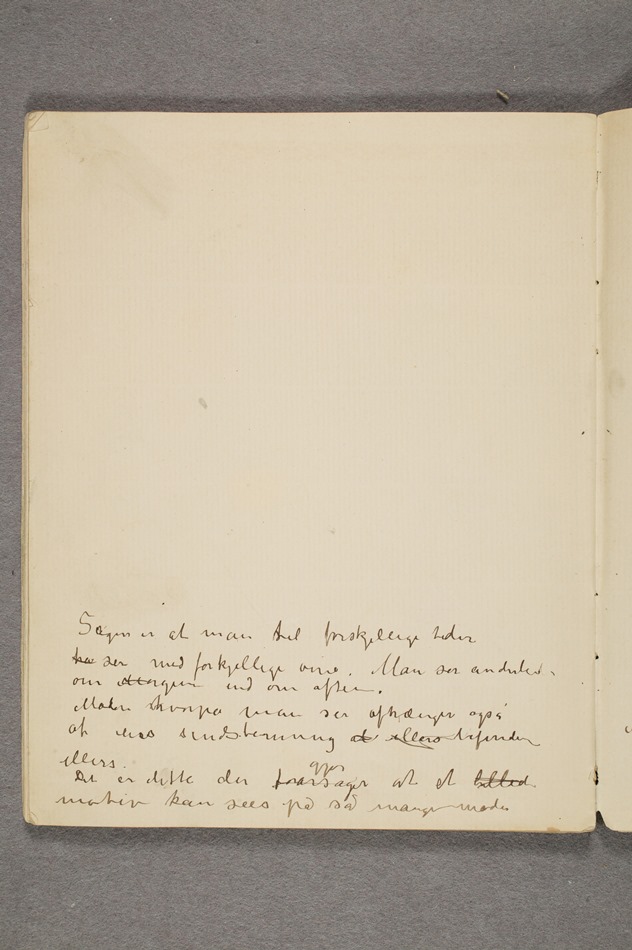 Sagen er at man til forskjellige tider
ha ser med forkjellige øine. Man ser anderled-
om Morgen end om aften.
Måden hvorpå man ser afhænger også
af ens sindstemning at ellers befinder
ellers.
gjør
Det er dette der foarsager at et billed
motiv kan sees på så mange måder